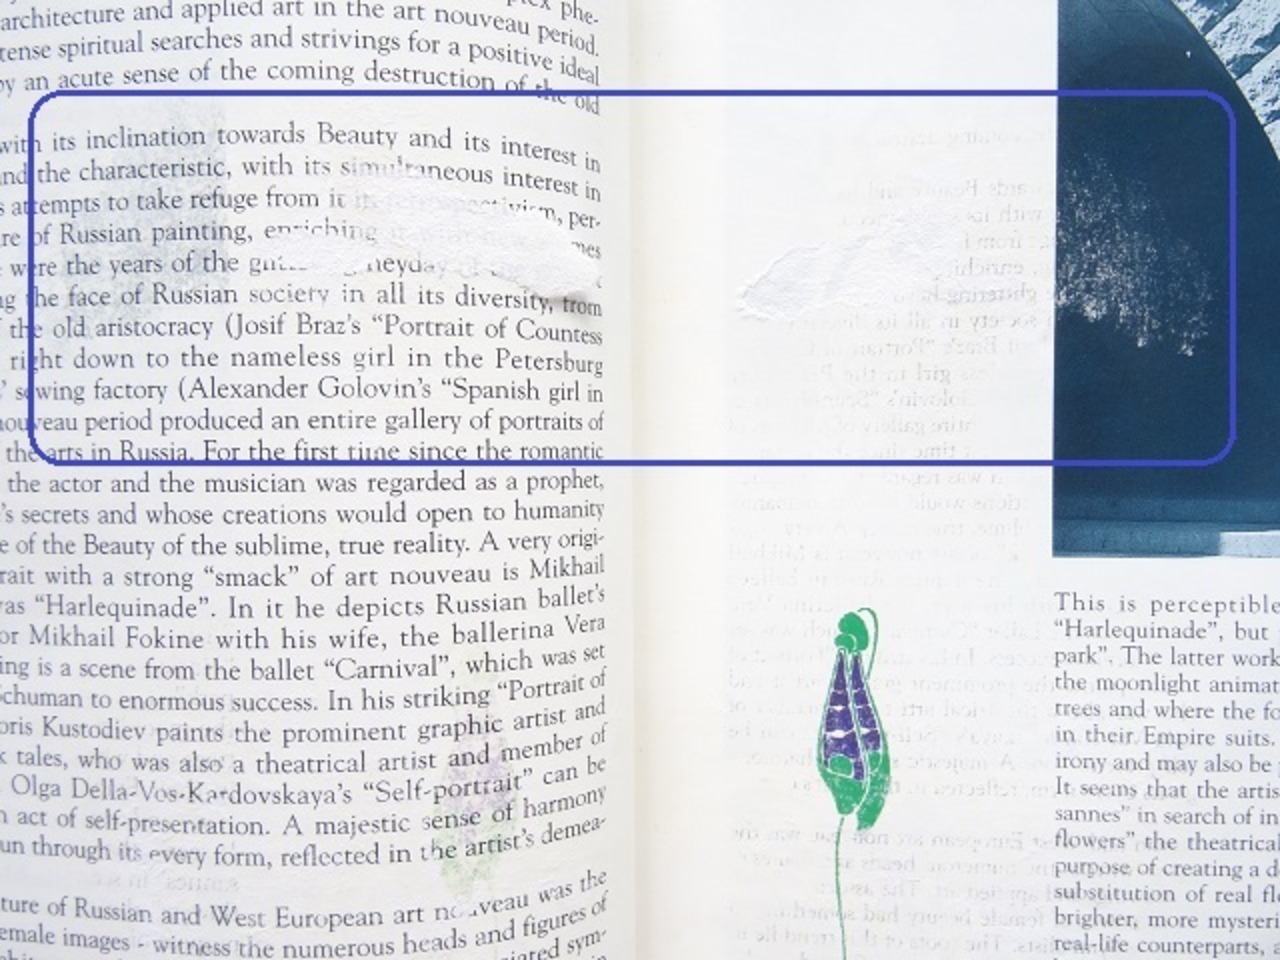 architecture and applied art in the art nouveau period.
tense spiritual searches and strivings for a positive ideal
by an acute sense of the coming destruction of the old
with its inclination towards Beauty and its interest in
and the characteristic, with its simultaneous interest in
attempts to take refuge from it in retrospectivism, per-
of Russian painting, enriching it with new
were the years of the heyday of the
the face of Russian society in all its diversity, from
the old aristocracy (Josif Braz's “Portrait of Countess
right down to the nameless girl in the Petersburg
sewing factory (Alexander Golovin's “Spanish girl in
nouveau period produced an entire gallery of portraits of
the arts in Russia. For the first time since the romantic
the actor and the musician was regarded as a prophet,
secrets and whose creations would open to humanity
of the Beauty of the sublime, true reality. A very origi-
with a strong “smack” of art nouveau is Mikhail
“Harlequinade”. In it he depicts Russian ballet's
or Mikhail Fokine with his wife, the ballerina Vera
is a scene from the ballet “Carnival”, which was set
Schuman to enormous success. In his striking “Portrait of
Kustodiev paints the prominent graphic artist and
tales, who was also a theatrical artist and member of
Olga Della-Vos-Kardovskaya's “Self-portrait” can be
act of self-presentation. A majestic sense of harmony
through its every form, reflected in the artist's demea-
of Russian and West European art nouveau was the
female images - witness the numerous heads and figures of
sym-
This is perceptible
“Harlequinade”, but
park”. The latter work
the moonlight animat
trees and where the fo
in their Empire suits.
irony and may also be
It seems that the artis
sannes” in search of in
flowers” the theatrical
purpose of creating a d
substitution of real flo
brighter, more mysteri
real-life counterparts, a